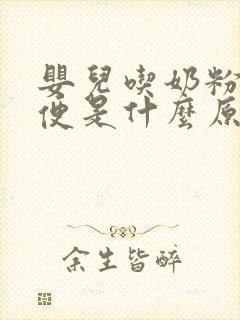 嬰兒喫奶粉
便是什麼原
余生皆醉